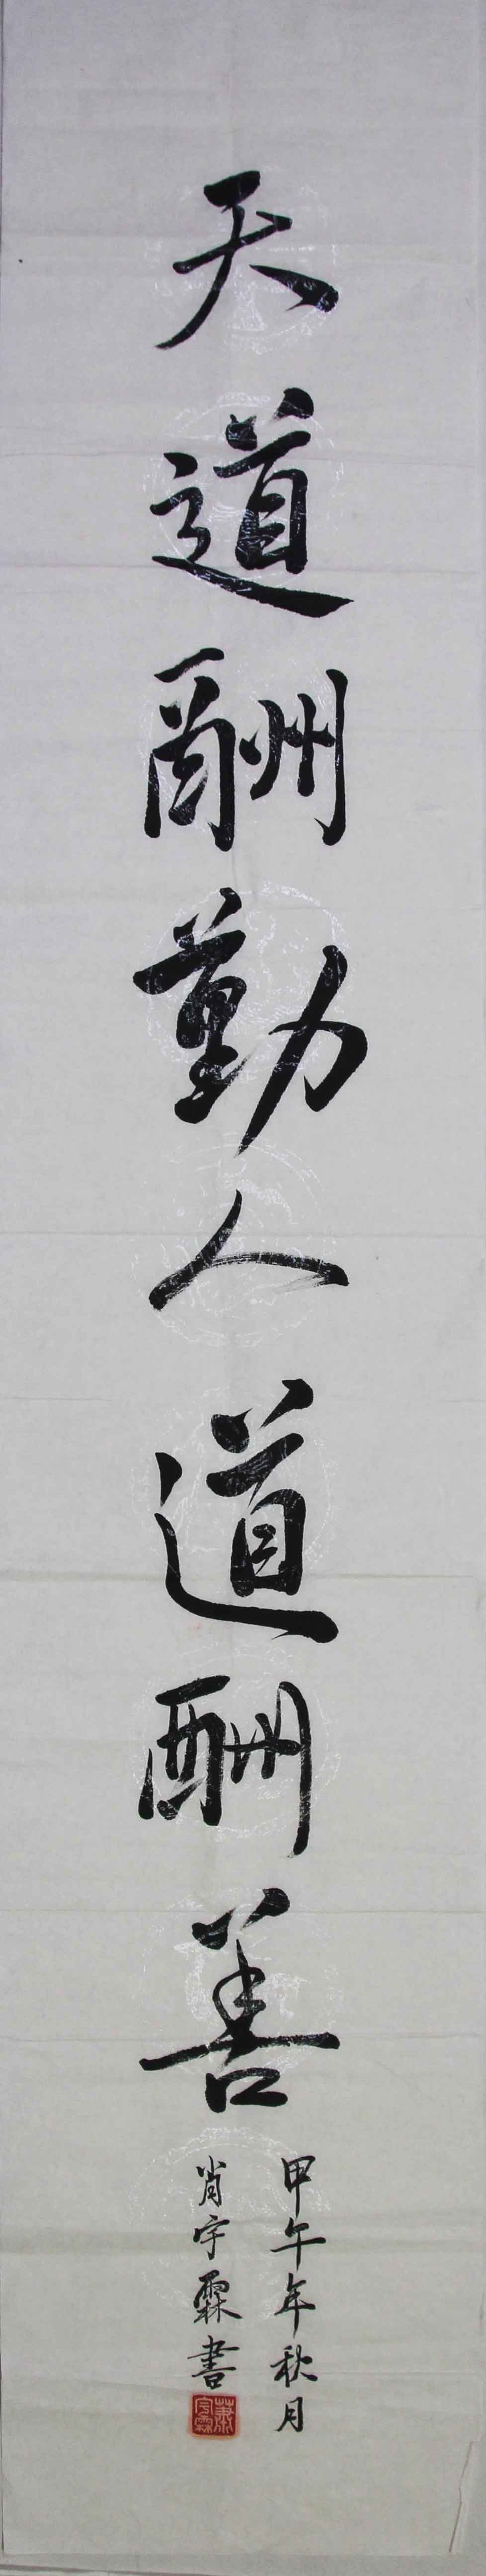 天道酬勤人道酬善
甲午年秋月
肖宇霖書
萧宇霖